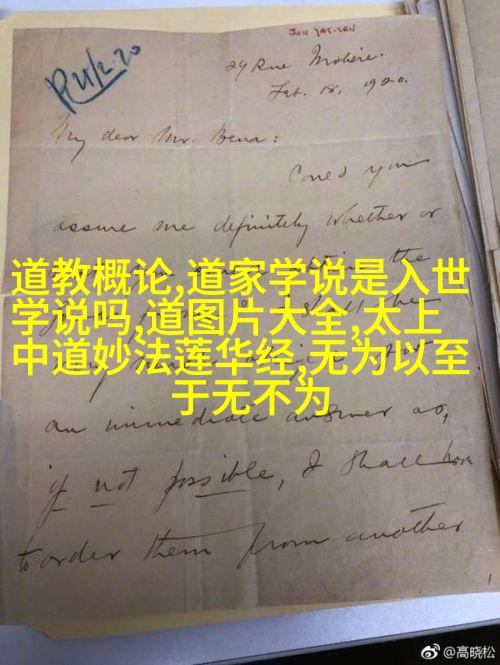 SUN YAT-SEN
R 21/2.20
29 Rue Molière.
Feb. 18, 1920.
My dear Mr. Bena:
Could you
assure me definitely whether or
道教概论,道家学说是入世
学说吗,道图片大全,太上
中道妙法莲华经,无为以至
于无不为
an immediate answer as,
if not possible, I shall have
to order them from another
@高晓松